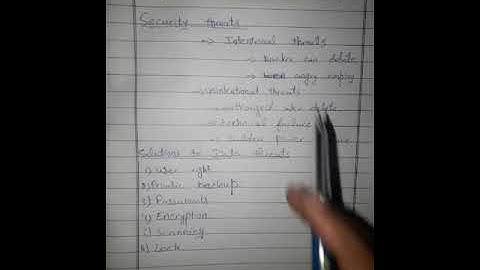 Security threats
→ Intentional threats
→ hacker can delete
→ angry employ
→ unintentional threats
→ delete
→ failure
→ sudden power
Solutions to Data threats
1) User right
2) Periodic backup
3) Passwords
4) Encryption
5) Scanning
6) Lock